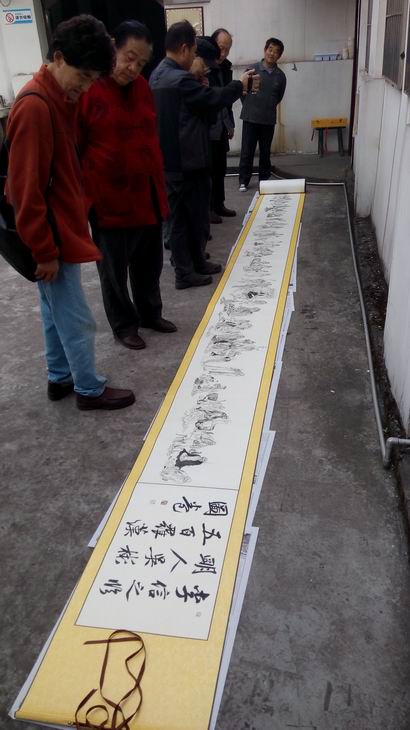 李信之臨
明人吳彬
五百羅漢
圖卷